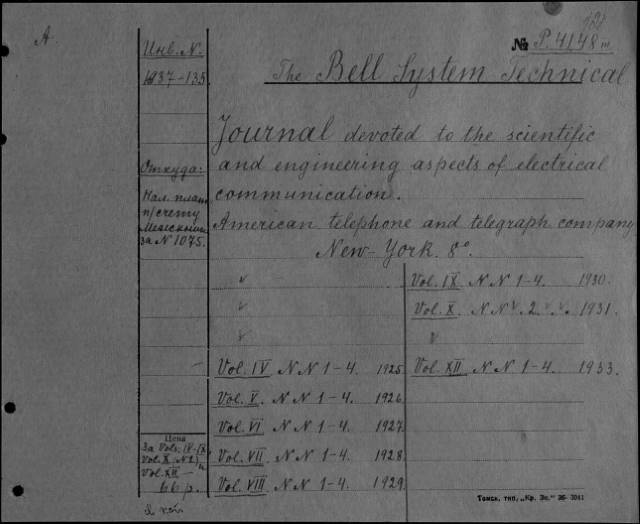 A.
№ P. 4148 m
Инв. N.
1937-135.
The Bell System Technical
Journal devoted to the scientific
and engineering aspects of electrical
communication.
American telephone and telegraph company
New-York. 8°.
Откуда:
п/счету
за N 1075.
v
v
v
Vol. IV NN 1-4. 1925
Vol. V. NN 1-4. 1926
Vol. VI NN 1-4. 1927
Vol. VII NN 1-4. 1928
Vol. VIII NN 1-4. 1929
Vol. IX NN 1-4. 1930.
Vol. X. NN v. 2. v. v. 1931.
v
Vol. XII NN 1-4. 1933.
Цена
За Vols. IV-IX
Vol. X N2) и
Vol. XII —
66 р.
Томск, тип. „Кр. Зн.“ 36- 3041